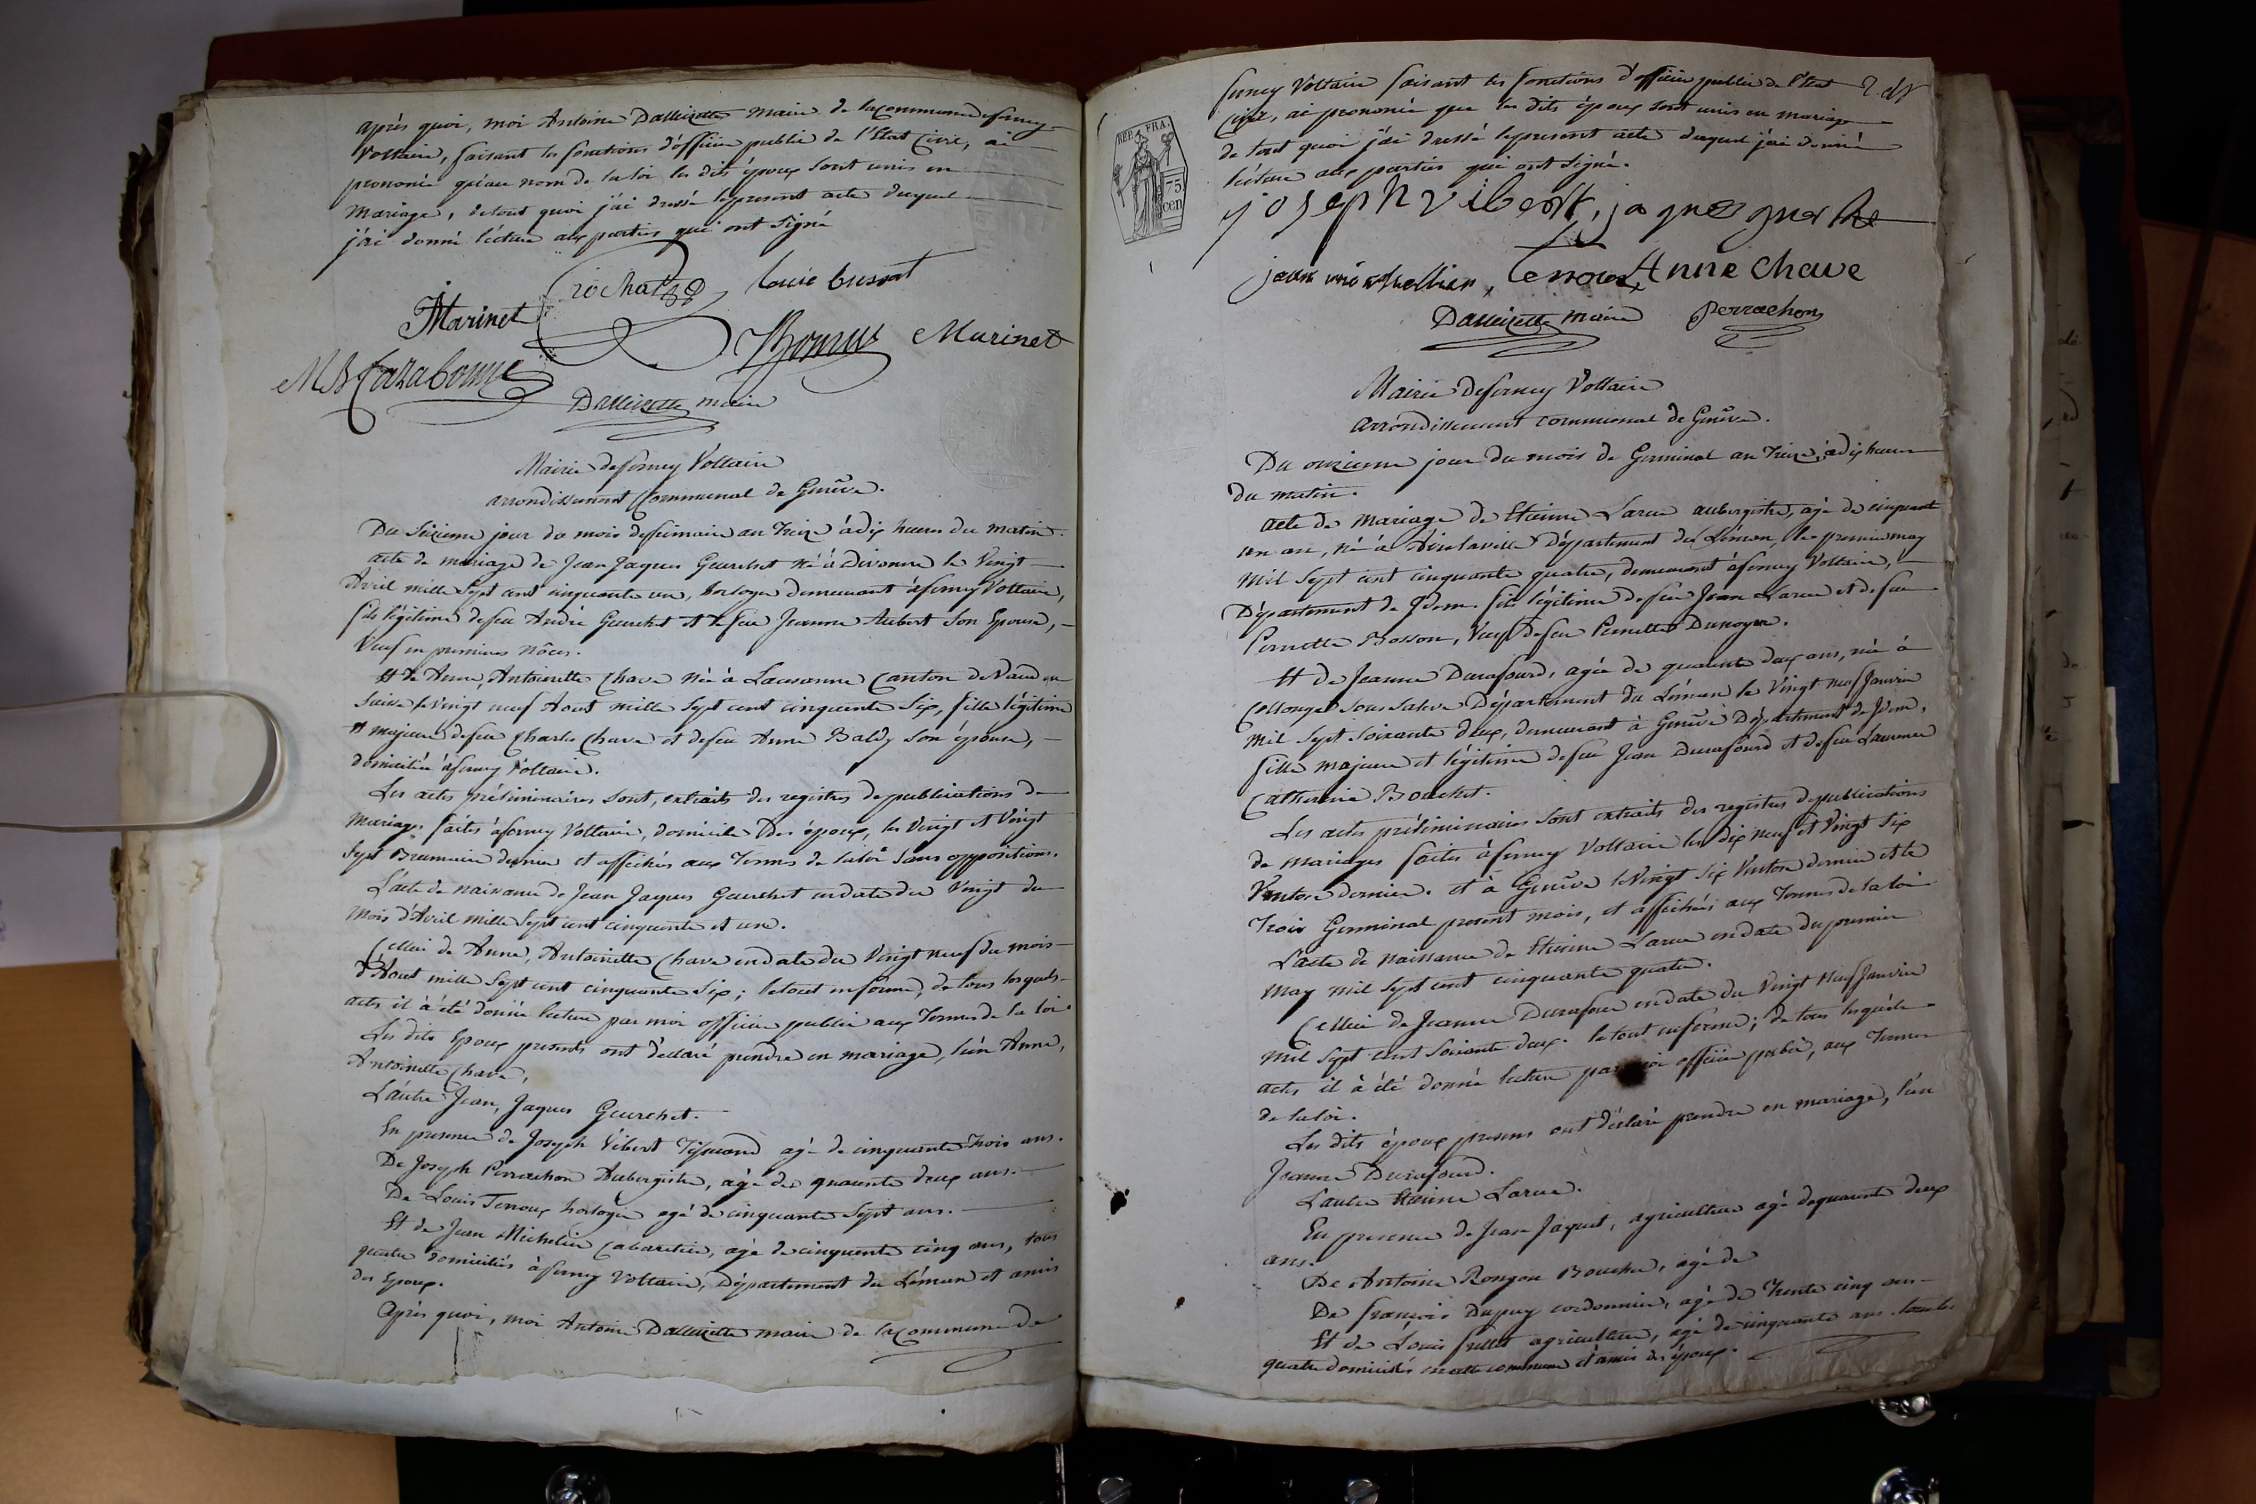 après quoi, moi Antoine Dallizette maire de la commune de ferney
Voltaire, faisant les fonctions d'officier public de l'Etat Civil, ai
prononcé qu'au nom de la loi les dits époux sont unis en
mariage, de tout quoi j'ai dressé le present acte duquel
j'ai donné lécture aux parties qui ont signé
Crochat louis bussat
Marinet
Marinet
Dallizette maire
Mairie de ferney Voltaire
arrondissement Communal de Genêve.
Du Sizieme jour du mois de frimaire an Treize à dix heures du matin.
acte de mariage de Jean Jaques Guerchet né à Divonne le Vingt
Avril mille Sept cent cinquante un, horloger demeurant à ferney Voltaire,
fils légitime de feu André Guerchet et de feu Jeanne Aubert son Epouse,
Veuf en premieres nôces.
Et de Anne, Antoinette Chave née à Lausanne Canton de Vaud en
Suisse le Vingt neuf Aout mille Sept cent cinquante Six, fille légitime
et majeure de feu Charles Chave et de feu Anne Baldy son épouse,
domiciliée à ferney Voltaire.
Les actes préliminaires sont, extraits des registres de publications de
Mariages faites à ferney Voltaire, domicile Des époux, les Vingt et Vingt
Sept Brumaire dernier et affichés aux Termes de la loi sans oppositions.
L'acte de naissance de Jean Jaques Guerchet en date du Vingt du
Mois d'Avril mille Sept cent cinquante et un.
Cellui de Anne, Antoinette Chave en date du Vingt neuf du mois
d'Aout mille Sept cent cinquante Six; le tout en forme, de tous lesquels
actes il à été donné lecture par moi officier public aux Termes de la loi
Les dits Epoux presents ont déclaré prendre en mariage, l'un Anne,
Antoinette Chave,
L'autre Jean, Jaques Guerchet.
En presence de Joseph Vibert Tisserand agé de cinquante trois ans.
De Joseph Perrachon Aubergiste, agé de quarente deux ans.
De Louis Tenoux horloger agé de cinquante Sept ans.
Et de Jean Michelin Cabaretier, agé de cinquante cinq ans, tous
quatre domiciliés à ferney Voltaire, Département du Léman et amis
des Epoux.
Après quoi, moi Antoine Dallizette maire de la commune de
ferney Voltaire faisant les fonctions d'officier public de l'Etat
Civil, ai prononcé que les dits époux sont unis en mariage
de tout quoi j'ai dressé le present acte duquel j'ai donné
lécture aux parties qui ont signé.
REP. FRA.
75
cen
joseph vibert, jaques
Tenoux, Anne Chave
Dallizette maire Perrachon
Mairie de ferney Voltaire
arrondissement communal de Genêve.
Du onzieme jour du mois de Germinal an Treize, à dix heures
du matin.
acte de Mariage de Etienne Larue aubergiste, agé de cinquante
un an, né à Département du Léman, le premier may
mil Sept cent cinquante quatre, demeurant à ferney Voltaire,
Département de Idem. fils légitime de feu Jean Larue et de feue
Pernette Bosson, Veuf de feue Pernette Dunoyer.
Et de Jeanne Durafourd, agée de quarante deux ans, née à
Collonges sous Saleve Département du Léman le Vingt neuf Janvier
mil Sept Soixante deux, demeurant à Genêve Département de Idem,
fille majeure et légitime de feu Jean Durafourd et de feue Laurence
Catherine Bouchet.
Les actes préliminaires sont extraits des registres de publications
de mariages faites à ferney Voltaire les dix neuf et Vingt Six
Ventose dernier. et à Genêve le Vingt Six Ventose dernier et le
Trois Germinal present mois, et affichés aux Termes de la loi
L'acte de naissance de Etienne Larue en date du premier
May mil Sept cent cinquante quatre.
Cellui de Jeanne Durafour en date du Vingt neuf Janvier
mil Sept cent Soixante deux. le tout en forme; de tous lesquels
actes il à été donné lecture par moi officier public, aux Termes
de la loi.
Les dits époux presens ont déclaré prendre en mariage, l'un
Jeanne Durafourd.
L'autre Etienne Larue.
En presence de Jean Jaquet, agriculteur agé de quarante deux
ans.
De Antoine Rongou Boucher, agé de
De françois Dupuy cordonnier, agé de Trente cinq ans
Et de Louis frillet agriculteur, agé de cinquante ans. tous les
quatre domiciliés en cette commune et amis des époux.